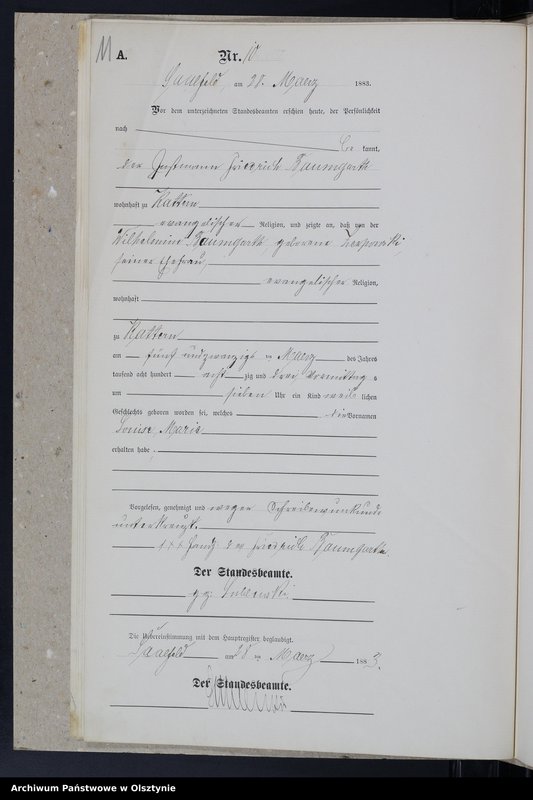 11 A.
Nr. 10
Saalfeld, am 28. Maerz 1883.
Vor dem unterzeichneten Standesbeamten erschien heute, der Persönlichkeit
nach be kannt,
der Instmann Friedrich Baumgarth
wohnhaft zu Kattern
evangelischer Religion, und zeigte an, daß von der
Wilhelmine Baumgarth, geborene
seiner Ehefrau,
evangelischer Religion,
wohnhaft
zu Kattern
am fünf und zwanzigs ten Maerz des Jahres
tausend acht hundert acht zig und drei Vormittags
um sieben Uhr ein Kind weib lichen
Geschlechts geboren worden sei, welches die Vornamen
Louise, Marie
erhalten habe.
Vorgelesen, genehmigt und wegen Schreibensunkunde
unterkreuzt.
+++ Handz. des Friedrich Baumgarth.
Der Standesbeamte.
gz.
Die Uebereinstimmung mit dem Hauptregister beglaubigt.
Saalfeld am 28 ten Maerz 1883.
Der Standesbeamte.
Archiwum Państwowe w Olsztynie